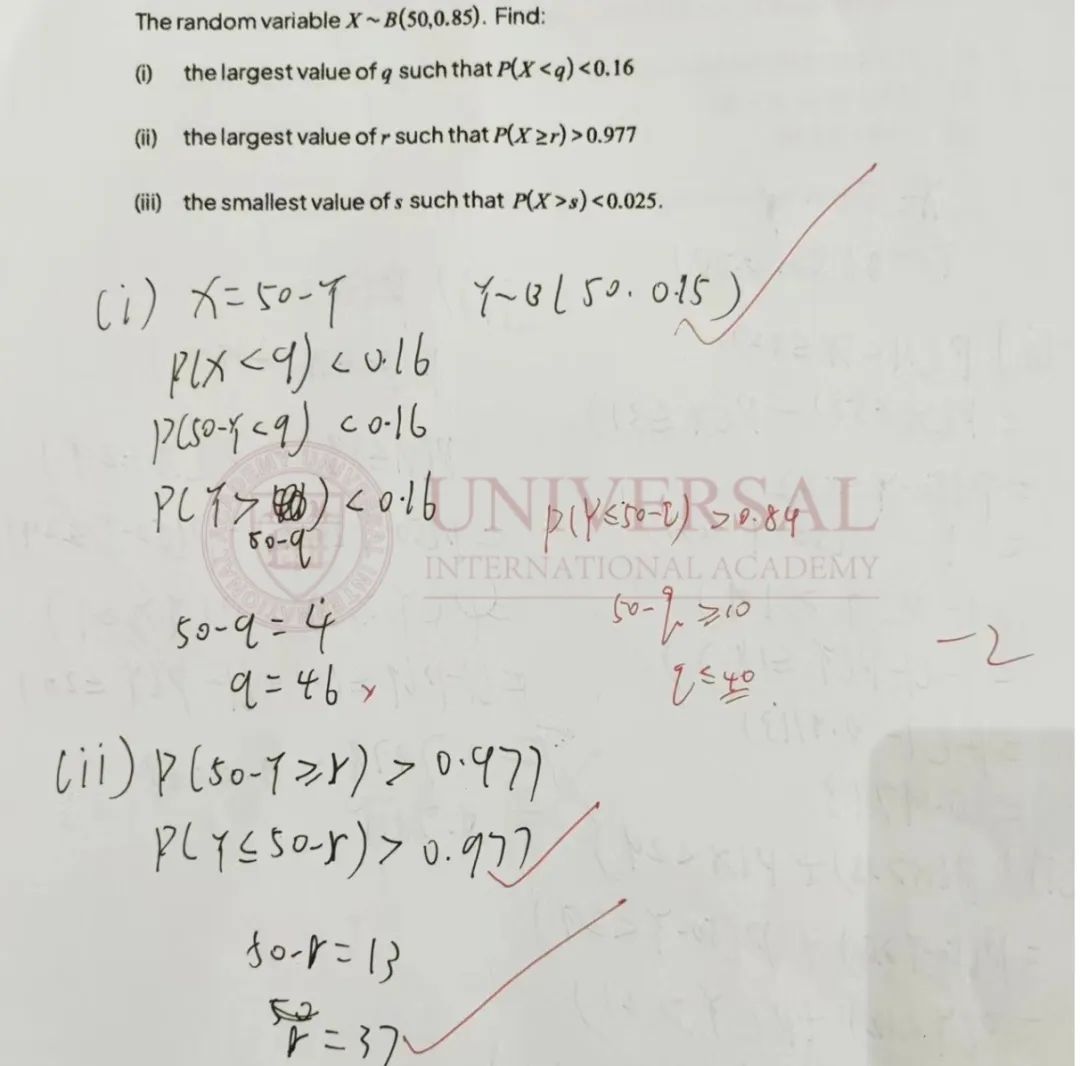 The random variable X~B(50,0.85). Find:
(i) the largest value of q such that P(X<q)<0.16
(ii) the largest value of r such that P(X≥r)>0.977
(iii) the smallest value of s such that P(X>s)<0.025.
(i) X=50-Y Y~B(50. 0.15)
P(X<q)<0.16
P(50-Y<q) <0.16
P(Y> )<0.16
50-q
UNIVERSAL
P(Y≤50-q)>0.84
INTERNATIONAL ACADEMY
50-q=4
50-q≥10
-2
q=46 x
q≤40
(ii) P(50-Y≥r)>0.977
P(Y≤50-r)>0.977
50-r=13
r=37